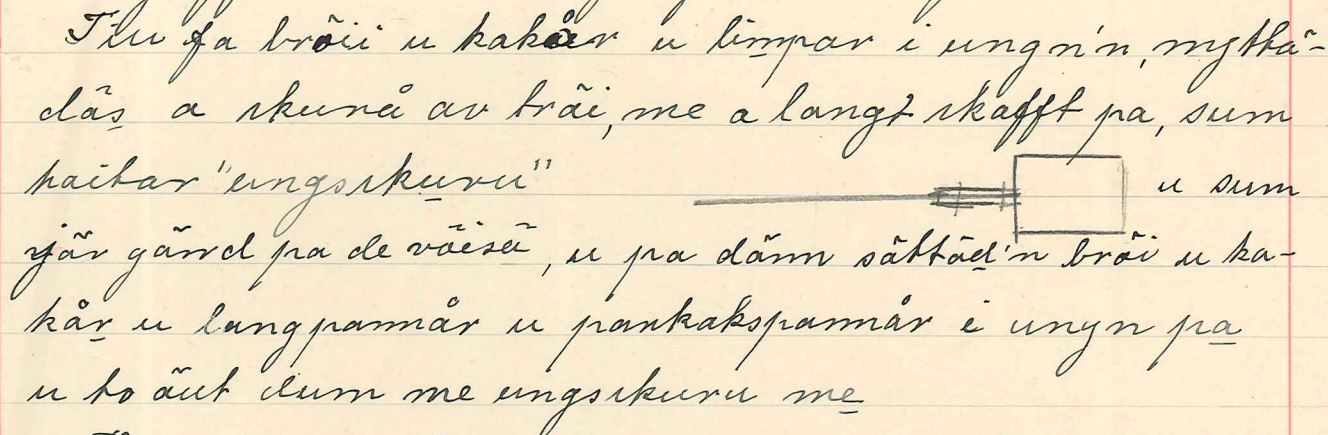 Tiu fa bröii u kakår u limpar i ungn'n, myttä-
däs a skurå av träi, me a langt skafft pa, sum
haitar "ungsskuru" u sum
jär gärrd pa de väisä, u pa dänn sättäd'n bröi u ka-
kår u langpannår u pankakspannår i ungn pa
u to äut dum me ungsskuru me